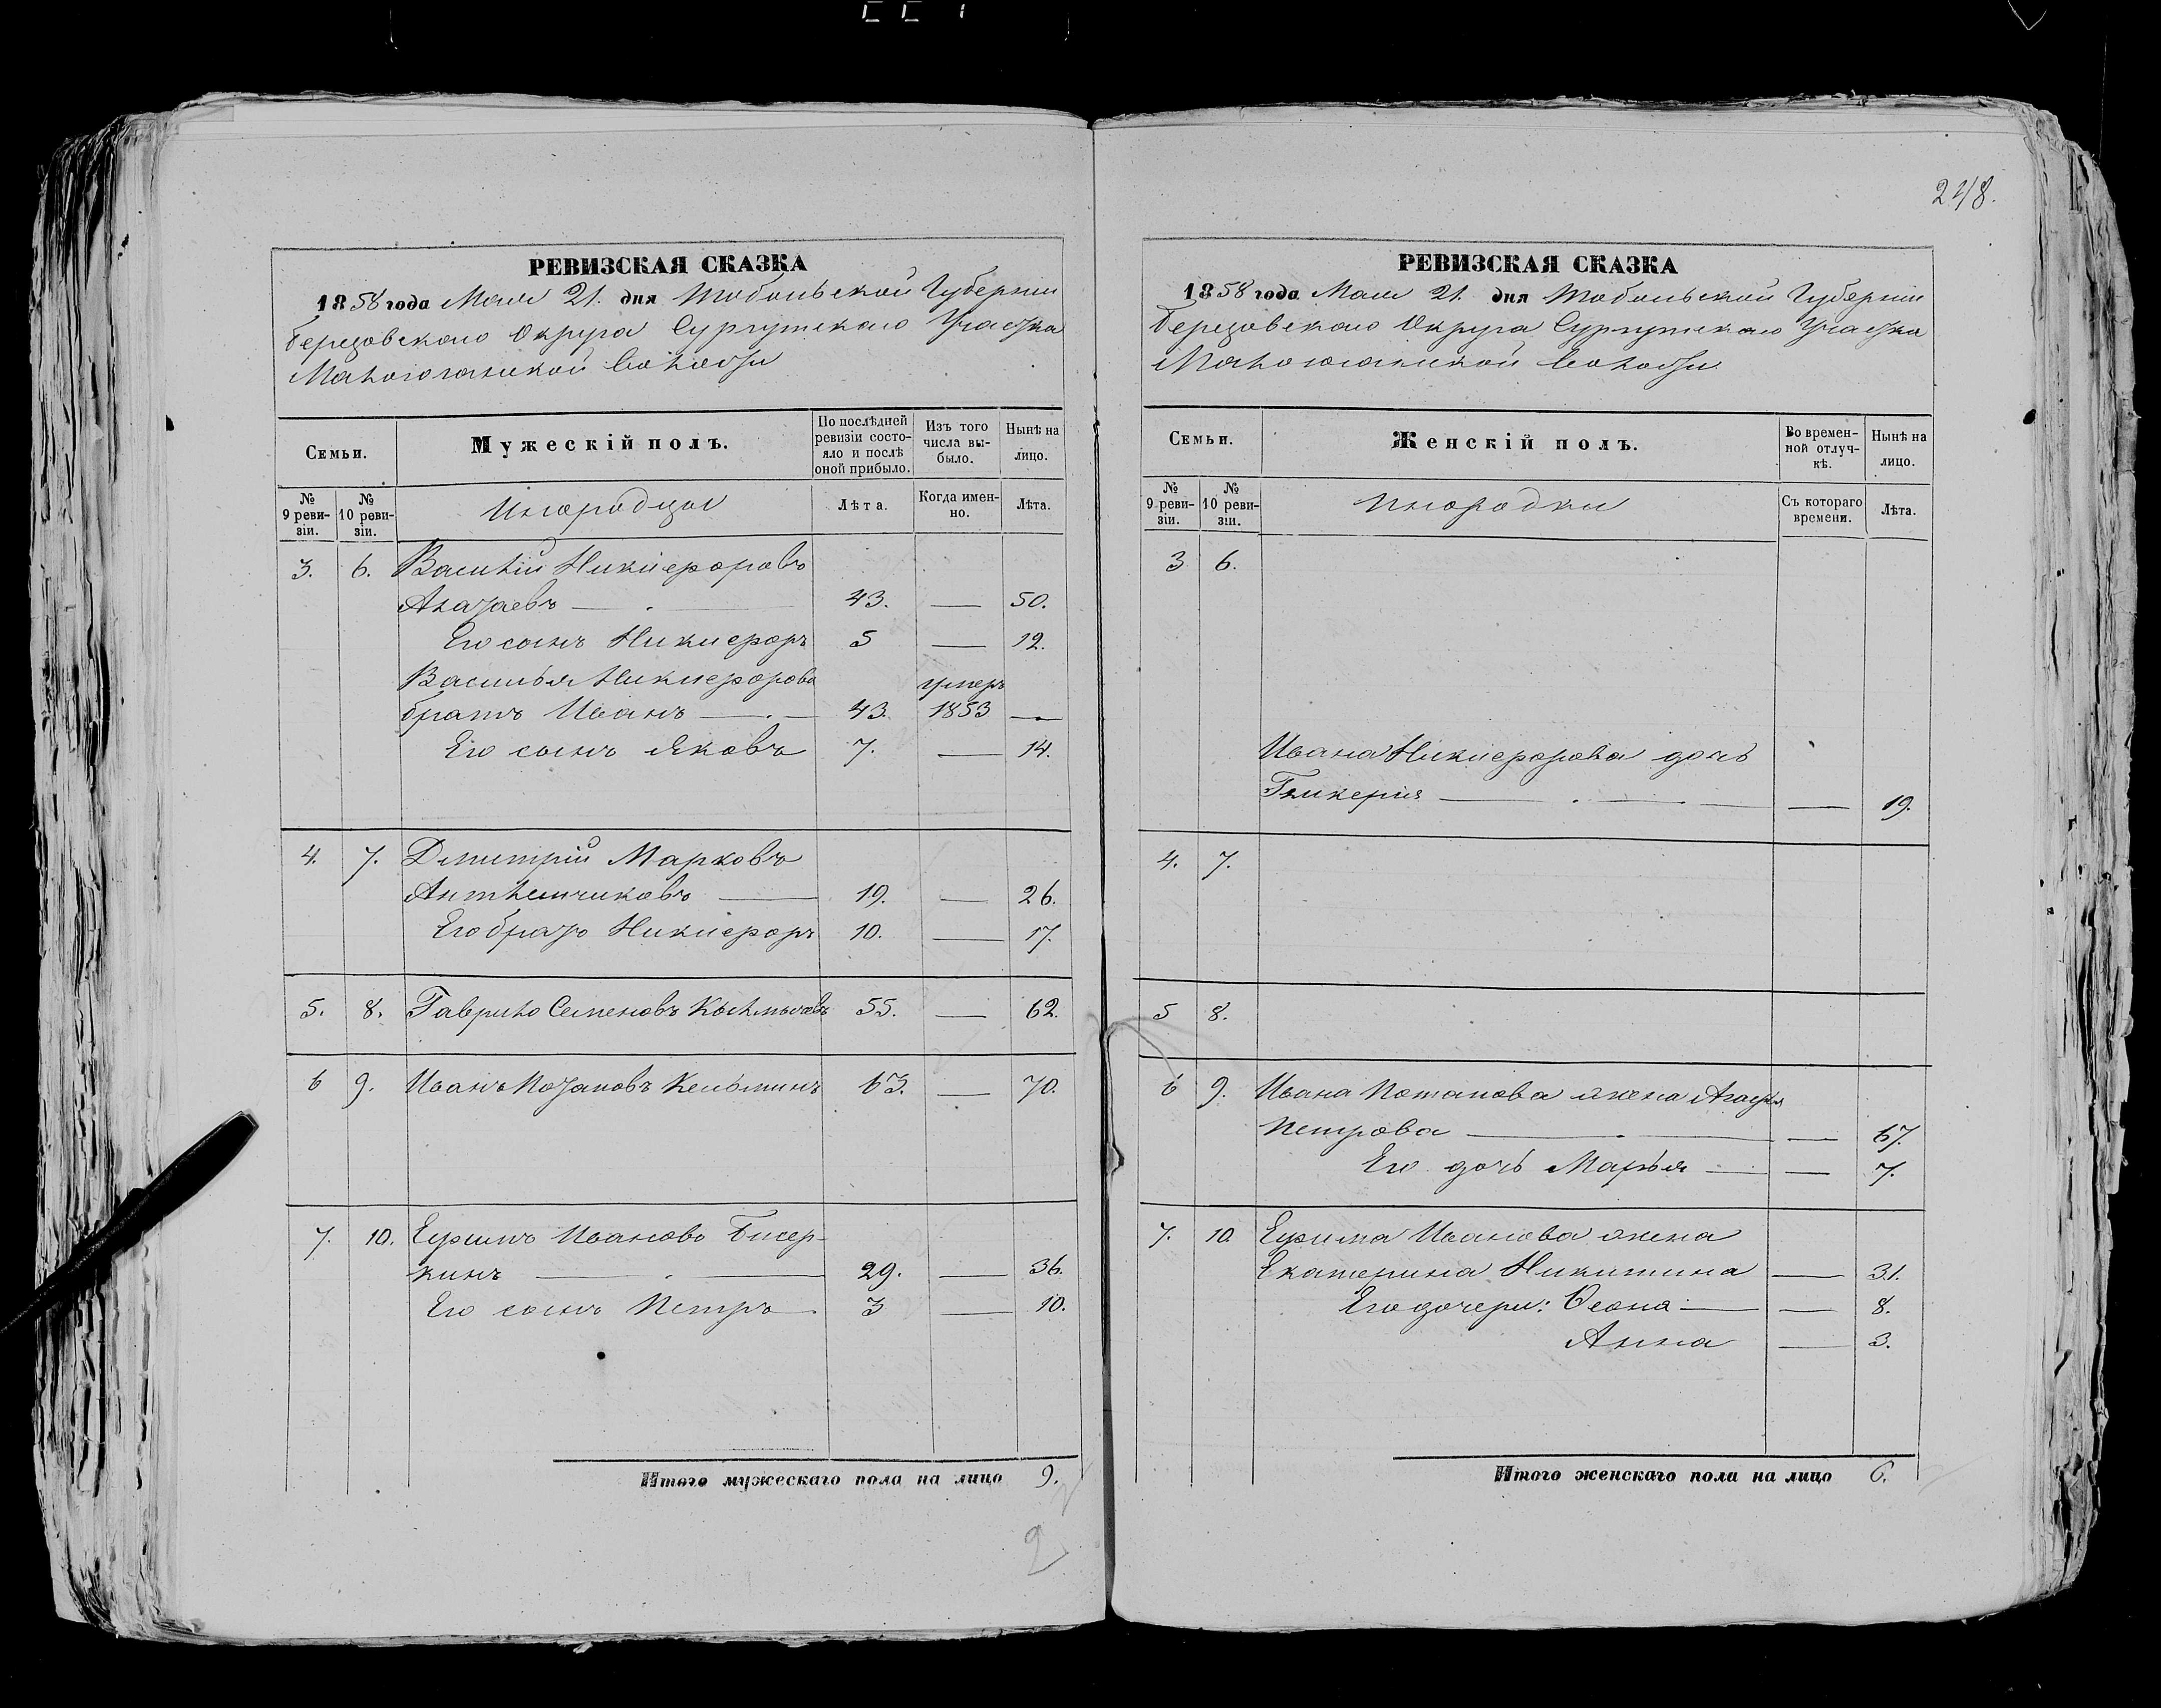 248.
РЕВИЗСКАЯ СКАЗКА
1858 года Мая 21. дня Тобольской Губернии
Березовскаго Округа Сургутскаго Участка
Малоюганской Волости
Семьи.
Мужескій полъ.
По послѣдней ревизіи состояло и послѣ оной прибыло.
Изъ того числа выбыло.
Нынѣ на лицо.
№ 9 ревизіи.
№ 10 ревизіи.
Инородцы
Лѣта.
Когда именно.
Лѣта.
3. 6. Василій Никифоровъ
— 43. — 50.
Его сынъ Никифоръ 5 — 12.
Василья Никифорова умеръ
братъ Иванъ — 43. 1853 —
Его сынъ Яковъ 7. — 14.
4. 7. Дмитрій Марковъ
— 19. — 26.
Его братъ Никифоръ 10. — 17.
5. 8. Гаврило Семеновъ 55. — 62.
6 9. Иванъ Потаповъ Кельминъ 63. — 70.
7. 10. Ефимъ Ивановъ Бисер-
кинъ — 29. — 36.
Его сынъ Петръ 3 — 10.
Итого мужескаго пола на лицо 9.
2
РЕВИЗСКАЯ СКАЗКА
1858 года Мая 21. дня Тобольской Губернии
Березовскаго Округа Сургутскаго Участка
Малоюганской Волости
Семьи.
Женскій полъ.
Во временной отлучкѣ.
Нынѣ на лицо.
№ 9 ревизіи.
№ 10 ревизіи.
Инородки
Съ котораго времени.
Лѣта.
3 6.
Ивана Никифорова дочь
Гликерия — — 19.
4. 7.
5 8.
6 9. Ивана Потапова жена Агафья
Петрова — — 67.
Его дочь Марья — — 7.
7. 10 Ефима Иванова жена
Екатерина Никитина — 31.
Его дочери: — — 8.
Анна — 3.
Итого женскаго пола на лицо 6.